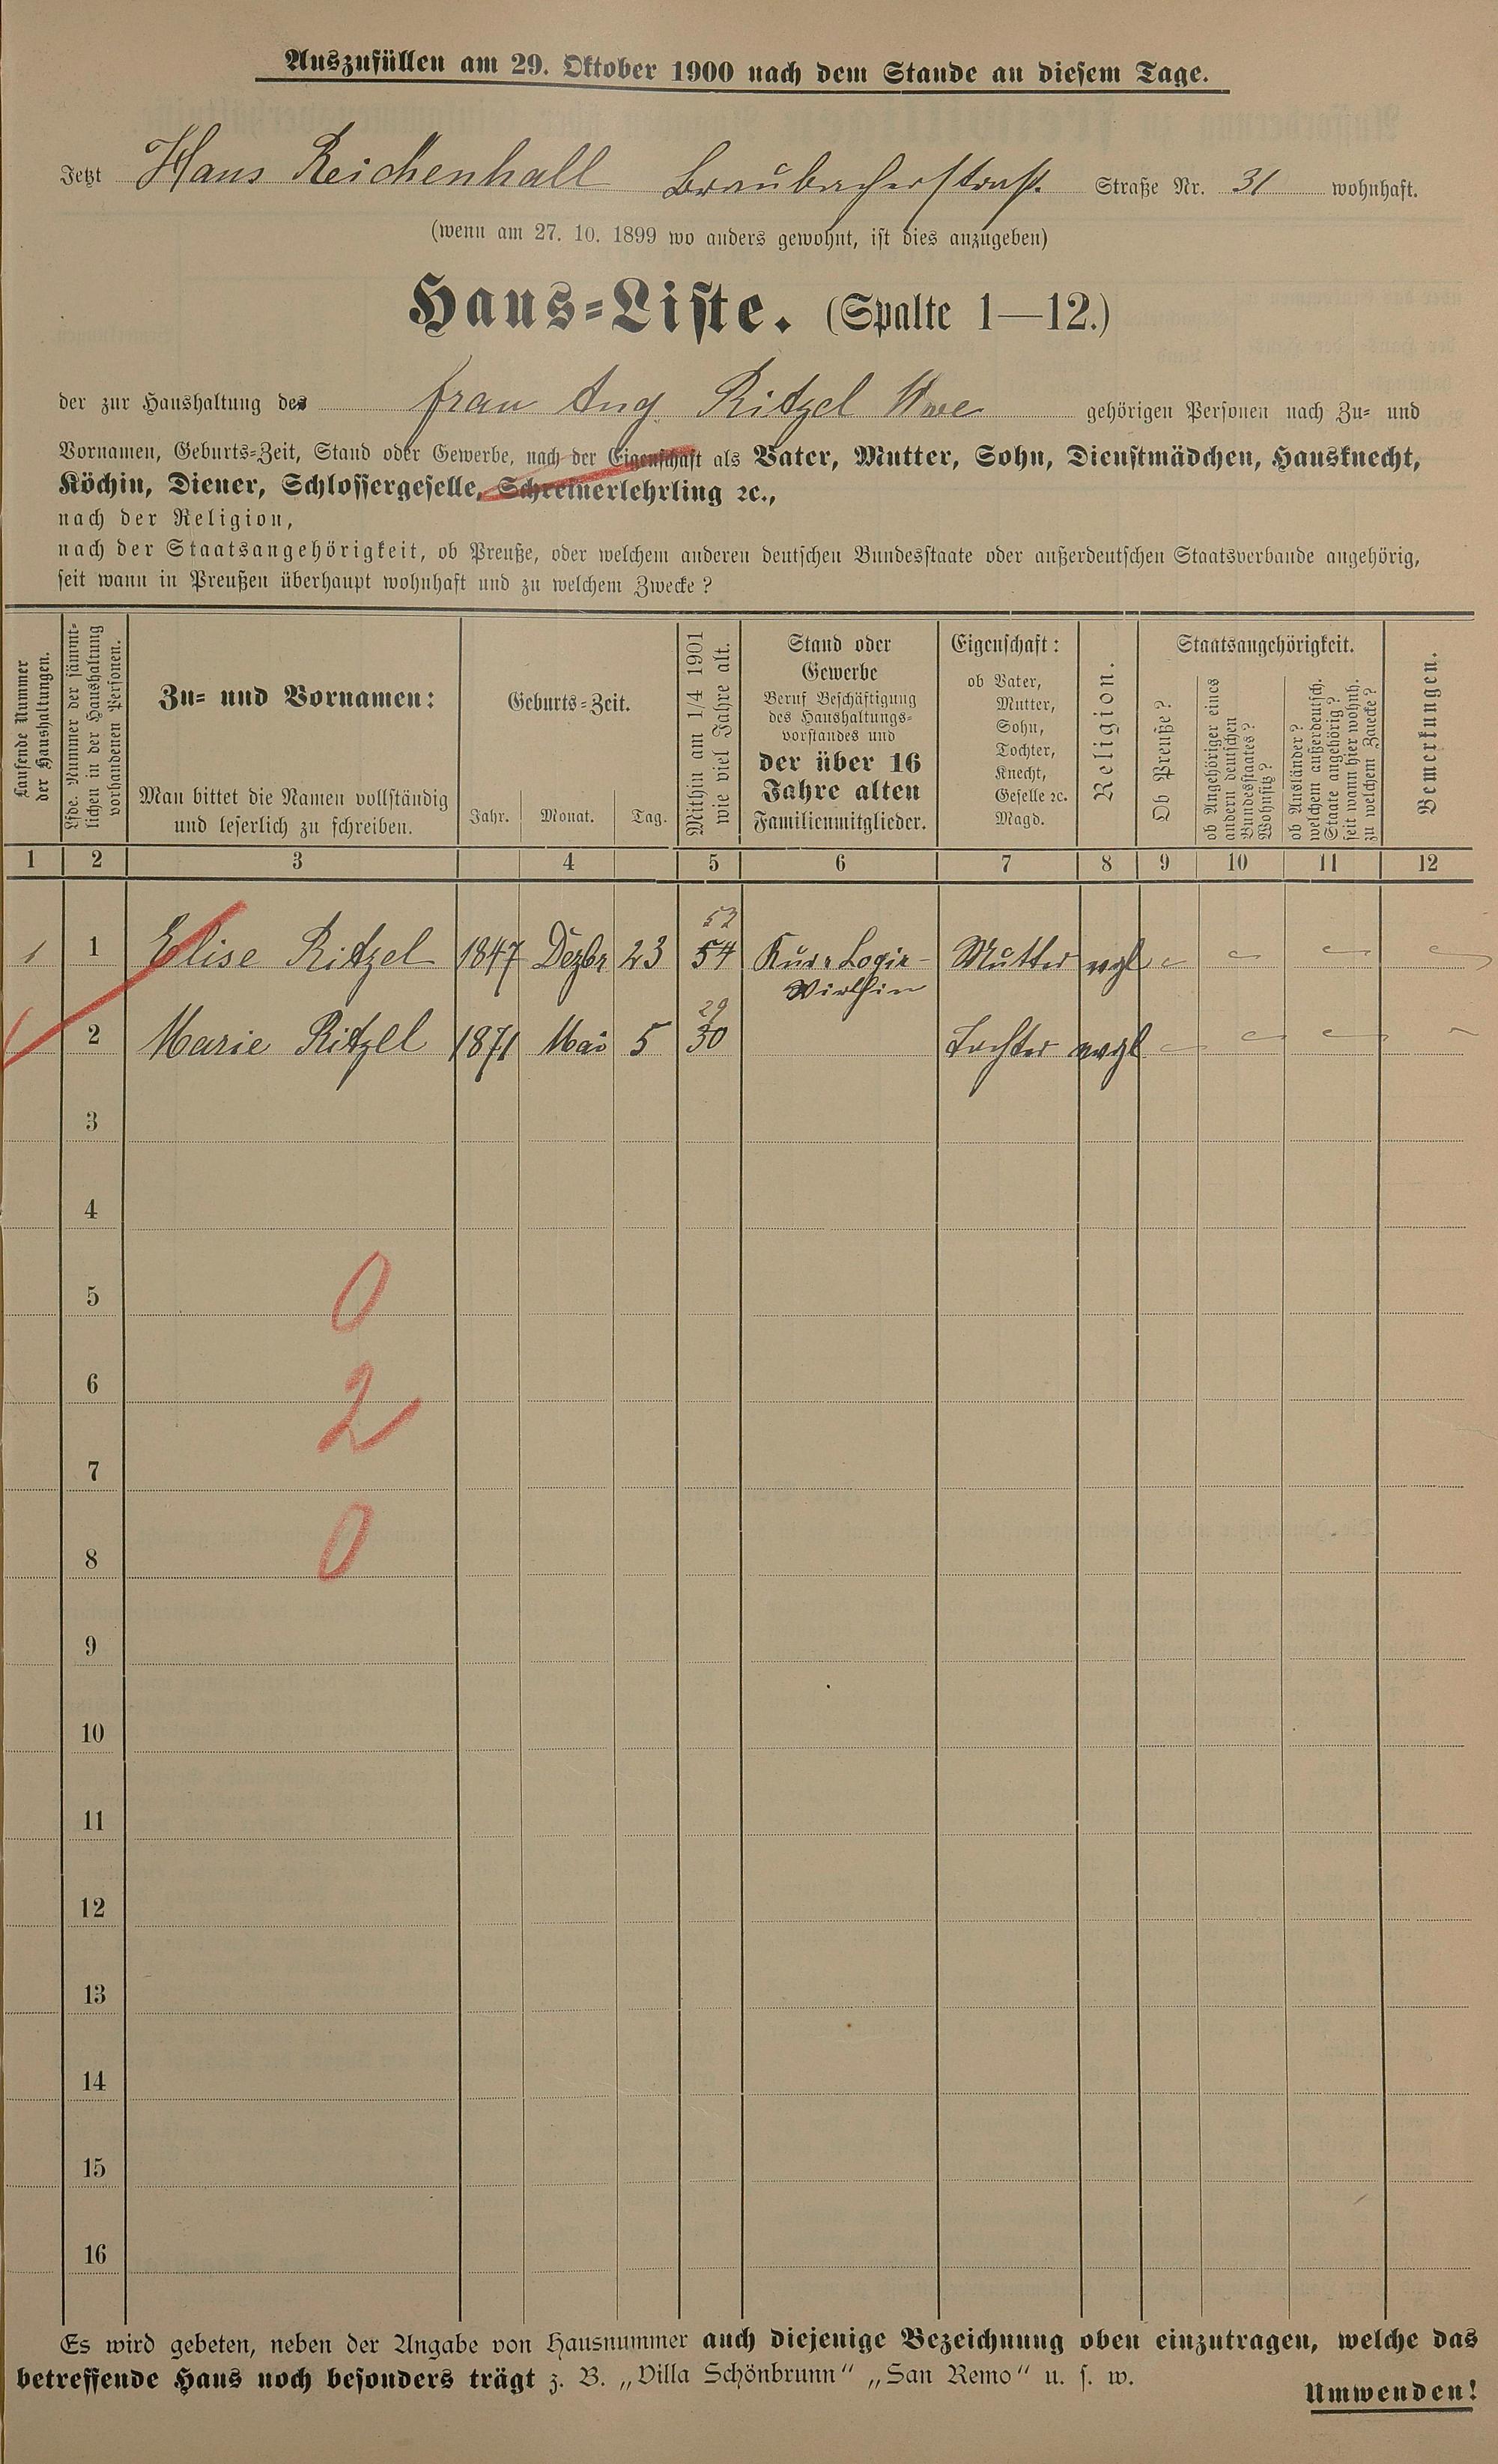 Auszufüllen am 29. Oktober 1900 nach dem Stande an diesem Tage.
Jetzt Haus Reichenhall Braubacherstraße Straße Nr. 31 wohnhaft.
(wenn am 27. 10. 1899 wo anders gewohnt, ist dies anzugeben)
Haus-Liste. (Spalte 1—12.)
der zur Haushaltung des Frau Aug Ritzel Wwe gehörigen Personen nach Zu- und
Vornamen, Geburts-Zeit, Stand oder Gewerbe, nach der Eigenschaft als Vater, Mutter, Sohn, Dienstmädchen, Hausknecht,
Köchin, Diener, Schlossergeselle, Schreinerlehrling ꝛc.,
nach der Religion,
nach der Staatsangehörigkeit, ob Preuße, oder welchem anderen deutschen Bundesstaate oder außerdeutschen Staatsverbande angehörig,
seit wann in Preußen überhaupt wohnhaft und zu welchem Zwecke?
Laufende Nummer
der Haushaltungen.
Lfde. Nummer der sämmt-
lichen in der Haushaltung
vorhandenen Personen.
Zu- und Vornamen:
Man bittet die Namen vollständig
und leserlich zu schreiben.
Geburts-Zeit.
Jahr. Monat. Tag.
Mithin am 1/4 1901
wie viel Jahre alt.
Stand oder
Gewerbe
Beruf Beschäftigung
des Haushaltungs-
vorstandes und
der über 16
Jahre alten
Familienmitglieder.
Eigenschaft:
ob Vater,
Mutter,
Sohn,
Tochter,
Knecht,
Geselle ꝛc.
Magd.
Religion.
Staatsangehörigkeit.
Ob Preuße?
ob Angehöriger eines
andern deutschen
Bundesstaates?
Wohnsitz?
ob Ausländer?
welchem außerdeutsch.
Staate angehörig?
seit wann hier wohnh.
zu welchem Zwecke?
Bemerkungen.
1 2 3 4 5 6 7 8 9 10 11 12
53
1 1 Elise Ritzel 1847 Dezbr 23 54 Kur & Logir- Mutter evgl
Wirthin
29
2 Marie Ritzel 1871 Mai 5 30 Tochter evgl
3
4
5
0
6
2
7
8
0
9
10
11
12
13
14
15
16
Es wird gebeten, neben der Angabe von Hausnummer auch diejenige Bezeichnung oben einzutragen, welche das
betreffende Haus noch besonders trägt z. B. „Villa Schönbrunn“ „San Remo“ u. s. w.
Umwenden!